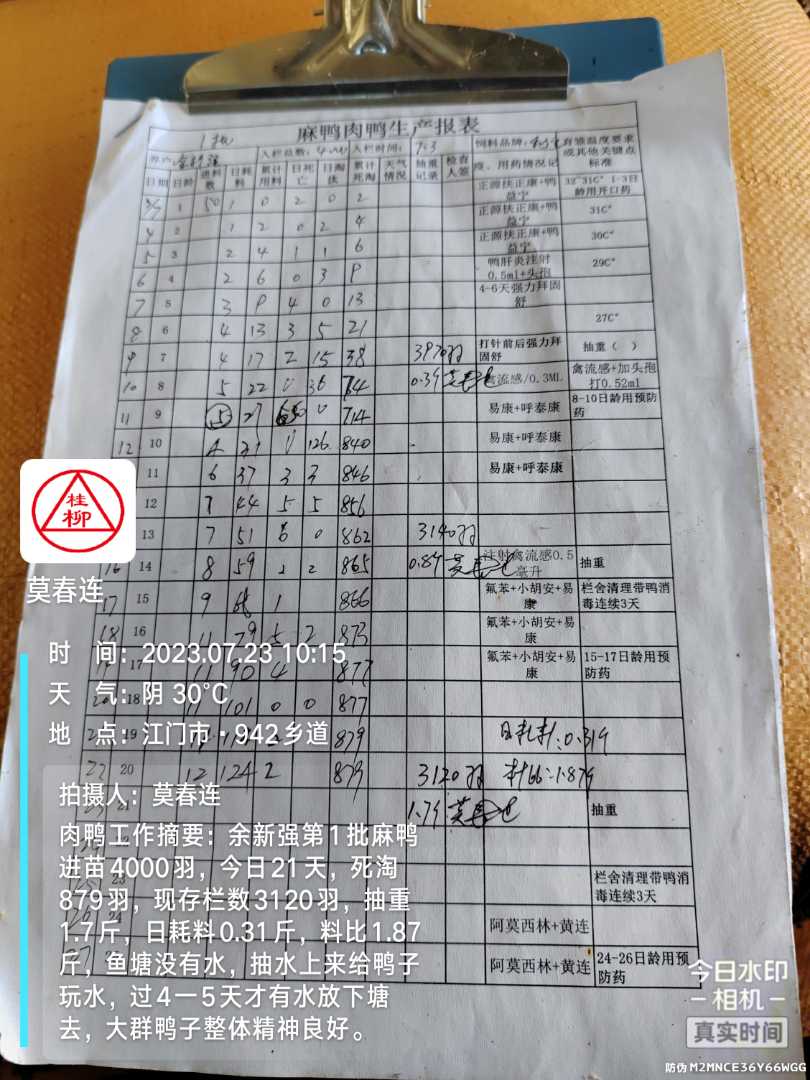 1批
麻鸭肉鸭生产报表
入栏总数: 入栏时间: 7.3 饲料品牌:
日期 日龄 进料数 日耗料 累计用料 日死亡 日淘汰 累计死淘 天气情况 抽重记录 检查人签 疫、用药情况记 育雏温度要求或其他关键点标准
1 50 1 0 2 0 2 正源扶正康+鸭益宁 32~31C° 1-3日龄用开口药
4 2 1 2 0 2 4 正源扶正康+鸭益宁 31C°
5 3 2 4 1 1 6 正源扶正康+鸭益宁 30C°
6 4 2 6 0 3 鸭肝炎注射0.5ml+头孢 29C°
7 5 3 4 0 13 4-6天强力拜固舒
8 6 4 13 3 5 21 27C°
9 7 4 17 2 15 38 3970羽 打针前后强力拜固舒 抽重（ ）
10 8 5 22 0 36 0.39 禽流感/0.3ML 禽流感+加头孢打0.52ml
11 9 5 27 0 714 易康+呼泰康 8-10日龄用预防药
12 10 126 840 易康+呼泰康
11 6 37 3 3 846 易康+呼泰康
12 7 44 5 5 856
13 7 51 6 0 862 3140羽
14 8 59 865 0.89 注射禽流感0.5毫升 抽重
17 15 9 1 866 氟苯+小胡安+易康 栏舍清理带鸭消毒连续3天
18 16 11 79 5 2 873 氟苯+小胡安+易康
17 11 90 4 877 氟苯+小胡安+易康 15-17日龄用预防药
18 101 0 0 877
19 879 日耗料:0.319
20 12 124 2 879 3120羽 料比:1.879
21 1.79 抽重
23 栏舍清理带鸭消毒连续3天
24 阿莫西林+黄连
阿莫西林+黄连 24-26日龄用预防药
桂柳
莫春连
时 间：2023.07.23 10:15
天 气：阴 30°C
地 点：江门市·942乡道
拍摄人：莫春连
肉鸭工作摘要：余新强第1批麻鸭
进苗4000羽，今日21天，死淘
879羽，现存栏数3120羽，抽重
1.7斤，日耗料0.31斤，料比1.87
斤，鱼塘没有水，抽水上来给鸭子
玩水，过4一5天才有水放下塘
去，大群鸭子整体精神良好。
今日水印
相机
真实时间
防伪 M2MNCE36Y66WGG